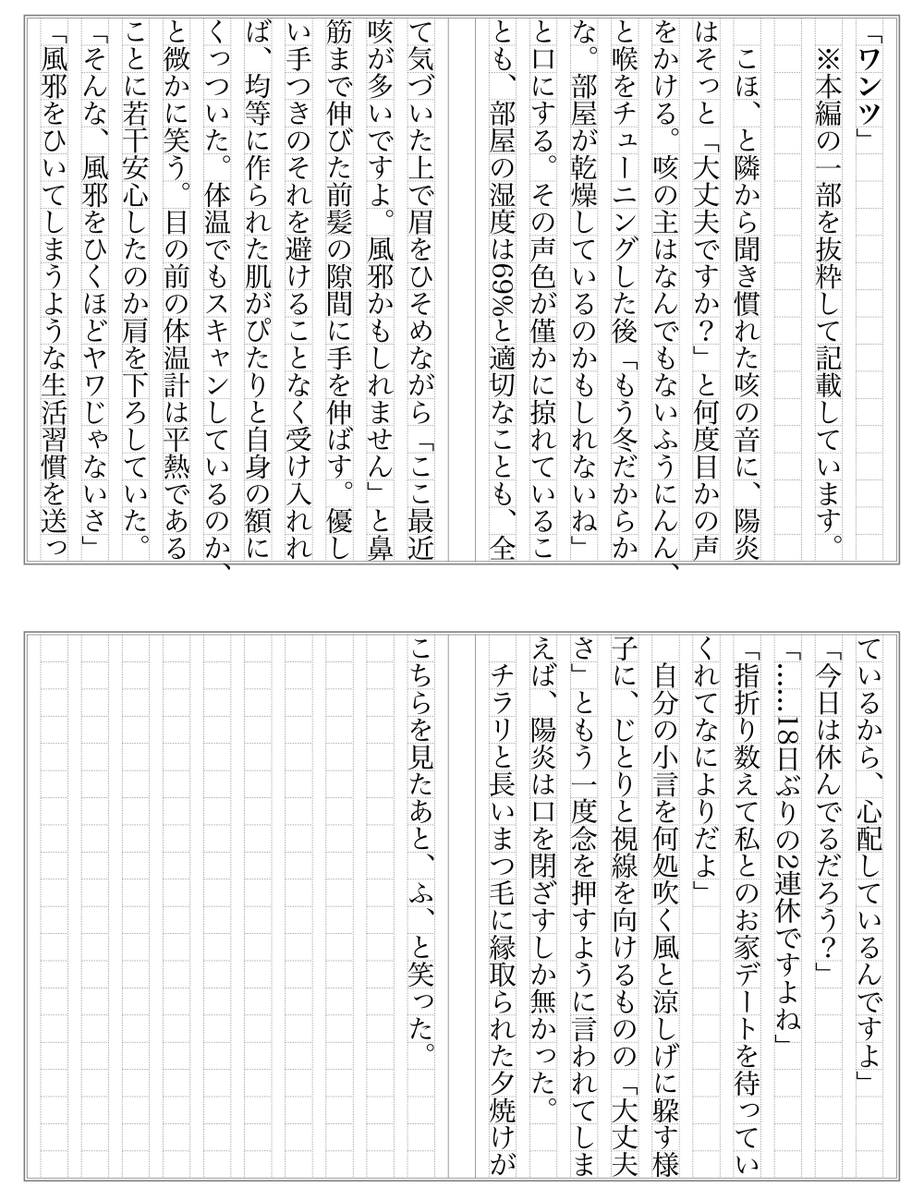 「ワンツ」
※本編の一部を抜粋して記載しています。
こほ、と隣から聞き慣れた咳の音に、陽炎
はそっと「大丈夫ですか？」と何度目かの声
をかける。咳の主はなんでもないふうにんん、
と喉をチューニングした後「もう冬だからか
な。部屋が乾燥しているのかもしれないね」
と口にする。その声色が僅かに掠れているこ
とも、部屋の湿度は69%と適切なことも、全
て気づいた上で眉をひそめながら「ここ最近
咳が多いですよ。風邪かもしれません」と鼻
筋まで伸びた前髪の隙間に手を伸ばす。優し
い手つきのそれを避けることなく受け入れれ
ば、均等に作られた肌がぴたりと自身の額に
くっついた。体温でもスキャンしているのか、
と微かに笑う。目の前の体温計は平熱である
ことに若干安心したのか肩を下ろしていた。
「そんな、風邪をひくほどヤワじゃないさ」
「風邪をひいてしまうような生活習慣を送っ
ているから、心配しているんですよ」
「今日は休んでるだろう？」
「……18日ぶりの2連休ですよね」
「指折り数えて私とのお家デートを待ってい
くれてなによりだよ」
自分の小言を何処吹く風と涼しげに躱す様
子に、じとりと視線を向けるものの「大丈夫
さ」ともう一度念を押すように言われてしま
えば、陽炎は口を閉ざすしか無かった。
チラリと長いまつ毛に縁取られた夕焼けが
こちらを見たあと、ふ、と笑った。